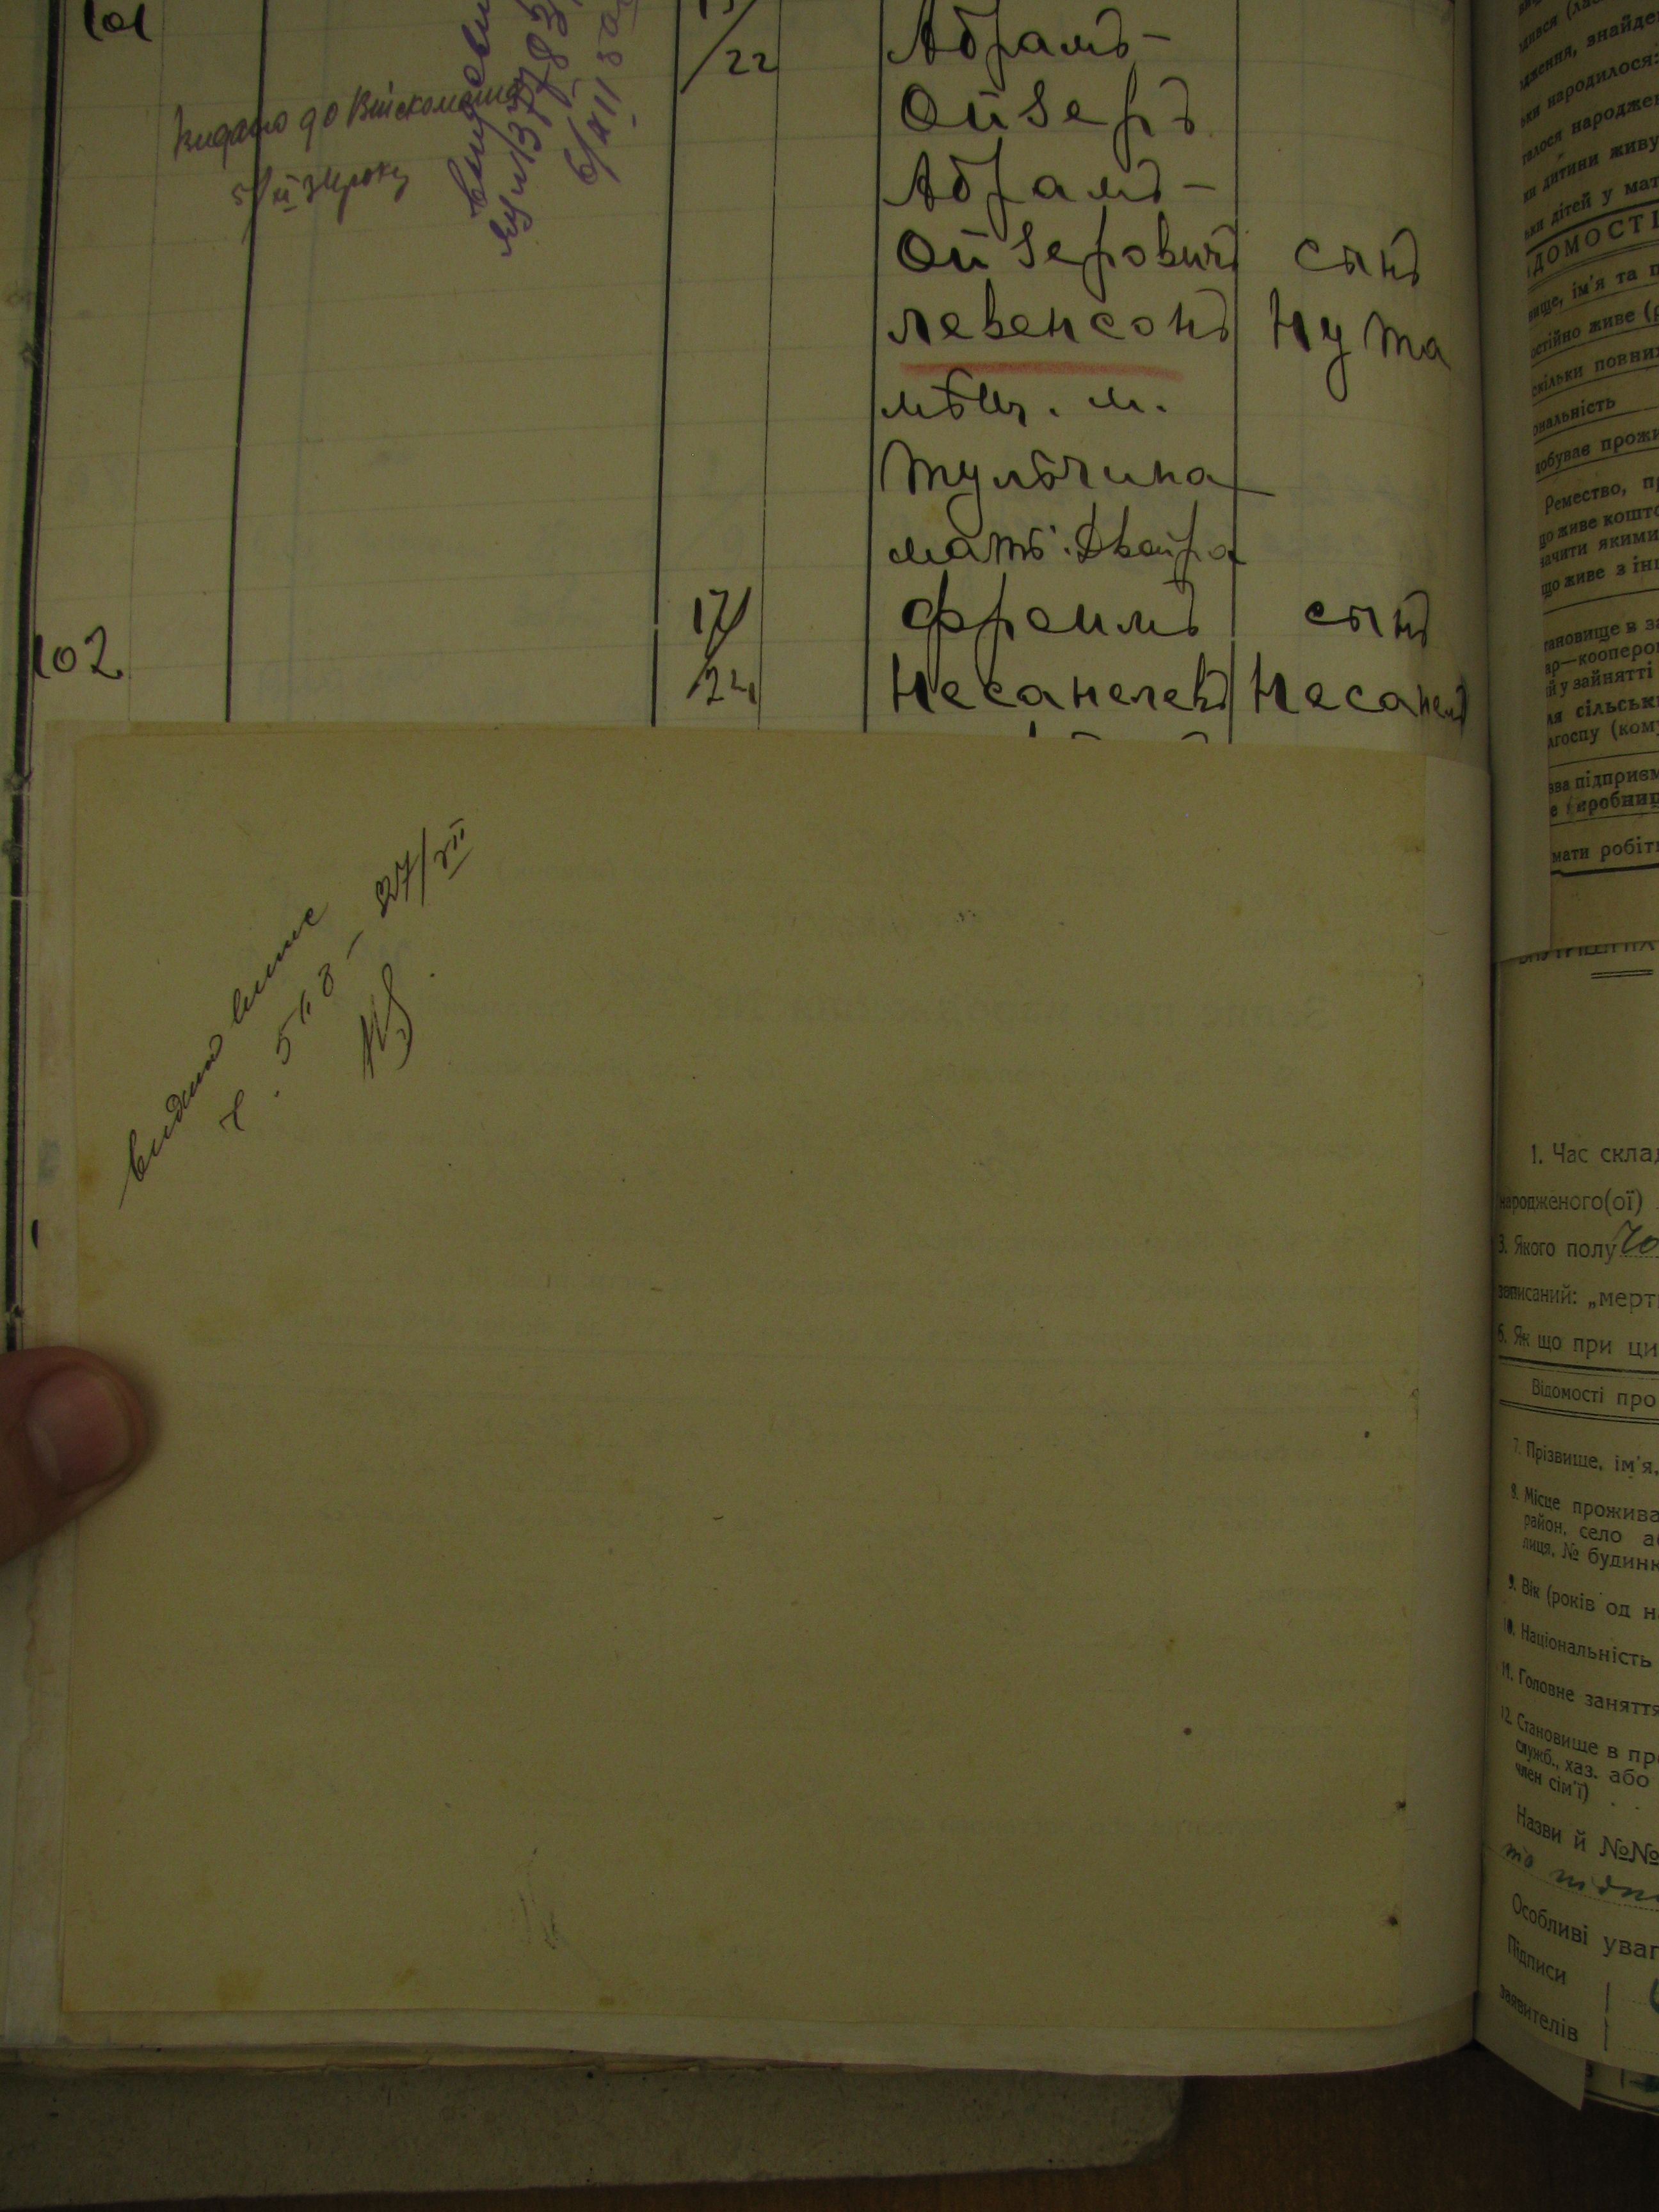 101
/22
Абрамъ-
Ойзеръ
Абрамъ-
Ойзеровичъ сынъ
Левенсонъ Нута
мѣщ. м.
Тульчина
мать: Двойра
видано до Військомата
5/ІІ 31 року
6/XII 50
102
17/
/24
Фроимъ сынъ
Несанелевъ Несанелъ
видано випис
ч. 568 - 27/VII
дження, знайде
ьки народилося:
талося народжен
ни дитини живу
ьки дітей у мат
ІДОМОСТІ
вище, ім'я та п
остійно живе (р
скільки повних
ональність
добуває прожи
Ремество, п
що живе кошто
начити якими
що живе з ін
тановище в за
ар—коопero
ій у зайнятті
ля сільськ
лгоспу (ком
ва підприєм
е (вробниц
мати робіт
1. Час склад
народженого(ої)
3. Якого полу чо
записаний: „мерт
6. Як що при ци
Відомості про
7. Прізвище, ім'я,
8. Місце прожива
район, село а
лиця, № будинк
9. Вік (років од н
10. Національність
11. Головне заняття
12. Становище в пр
служб., хаз. або
член сім'ї)
Назви й №№
Особливі уваг
Підписи
заявителів